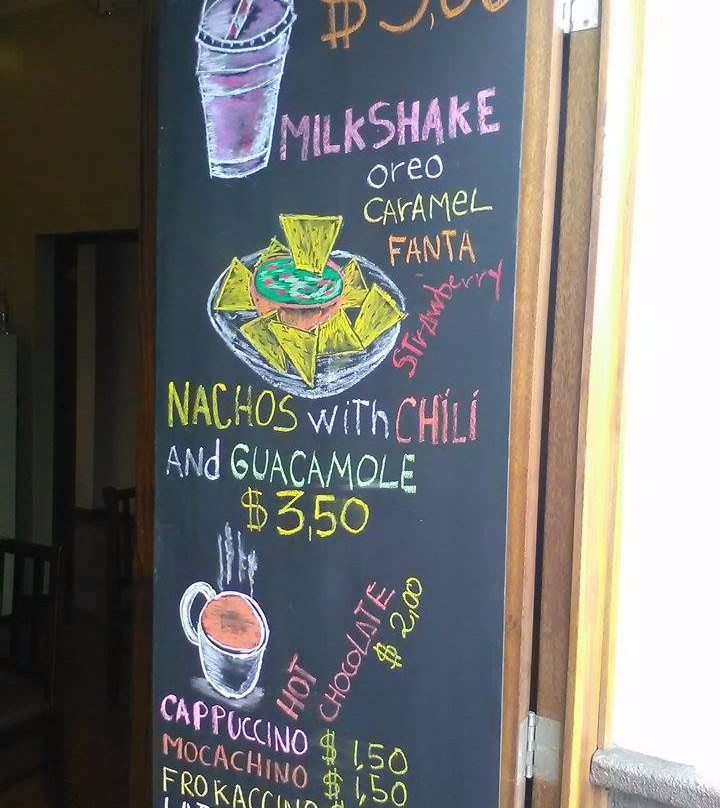 MILKSHAKE
oreo
CARAMEL
FANTA
Strawberry
NACHOS with CHILI
ANd GUACAMOLE
$3,50
HOT CHOCOLATE $ 2,00
CAPPUCCINO $ 1,50
MOCACHINO $ 1,50
FROKACCINO